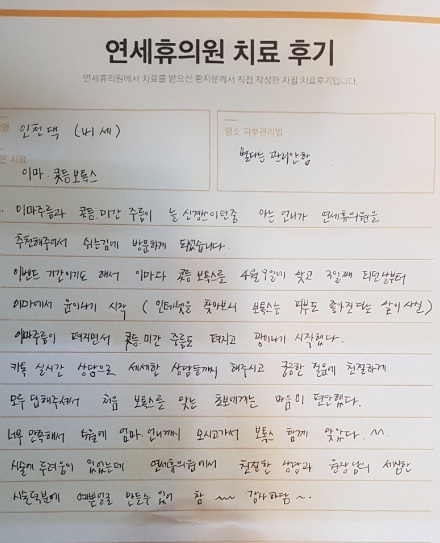 연세휴의원 치료 후기
연세휴의원에서 치료를 받으신 환자분께서 직접 작성한 자필 치료후기입니다.
명 인천댁 (네세)
은 시료
이마. 콧등보톡스
평소 피부관리법
별다른 관리안함
이마주름과 콧등.미간 주름이 늘 신경쓰이던중 아는 언니가 연세휴의원을
추천해주어서 쉬는김에 방문하게 되었습니다.
이벤트 기간이기도 해서 이마와 콧등 보톡스를 4월 9일에 맞고 3일째 되던날부터
이마에서 윤이나기 시작 (인터넷을 찾아보니 보톡스는 피부도 좋아진다는 살이 사실)
이마주름이 펴지면서 콧등.미간 주름도 펴지고 광이나기 시작했다.
카톡 실시간 상담으로 세세한 상담들까지 해주시고 궁금한 질문에 친절하게
모두 답해주셔서 처음 보톡스를 맞는 초보에게는 마음이 편안했다.
너무 만족해서 5월에 엄마.언니까지 모시고가서 보톡스 함께 맞았다. ^^.
시술에 두려움이 있었는데 연세휴의원에서 친절한 상담과 원장님의 세심한
시술덕분에 예쁜얼굴 만들수 있어 참 ~~ 감사하당 ~.